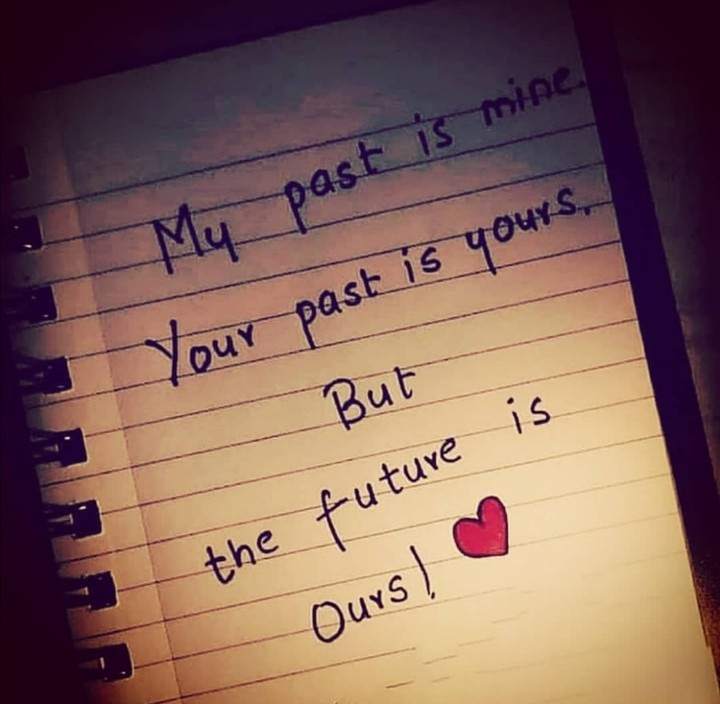 My past is mine.
Your past is yours.
But
the future is
Ours!